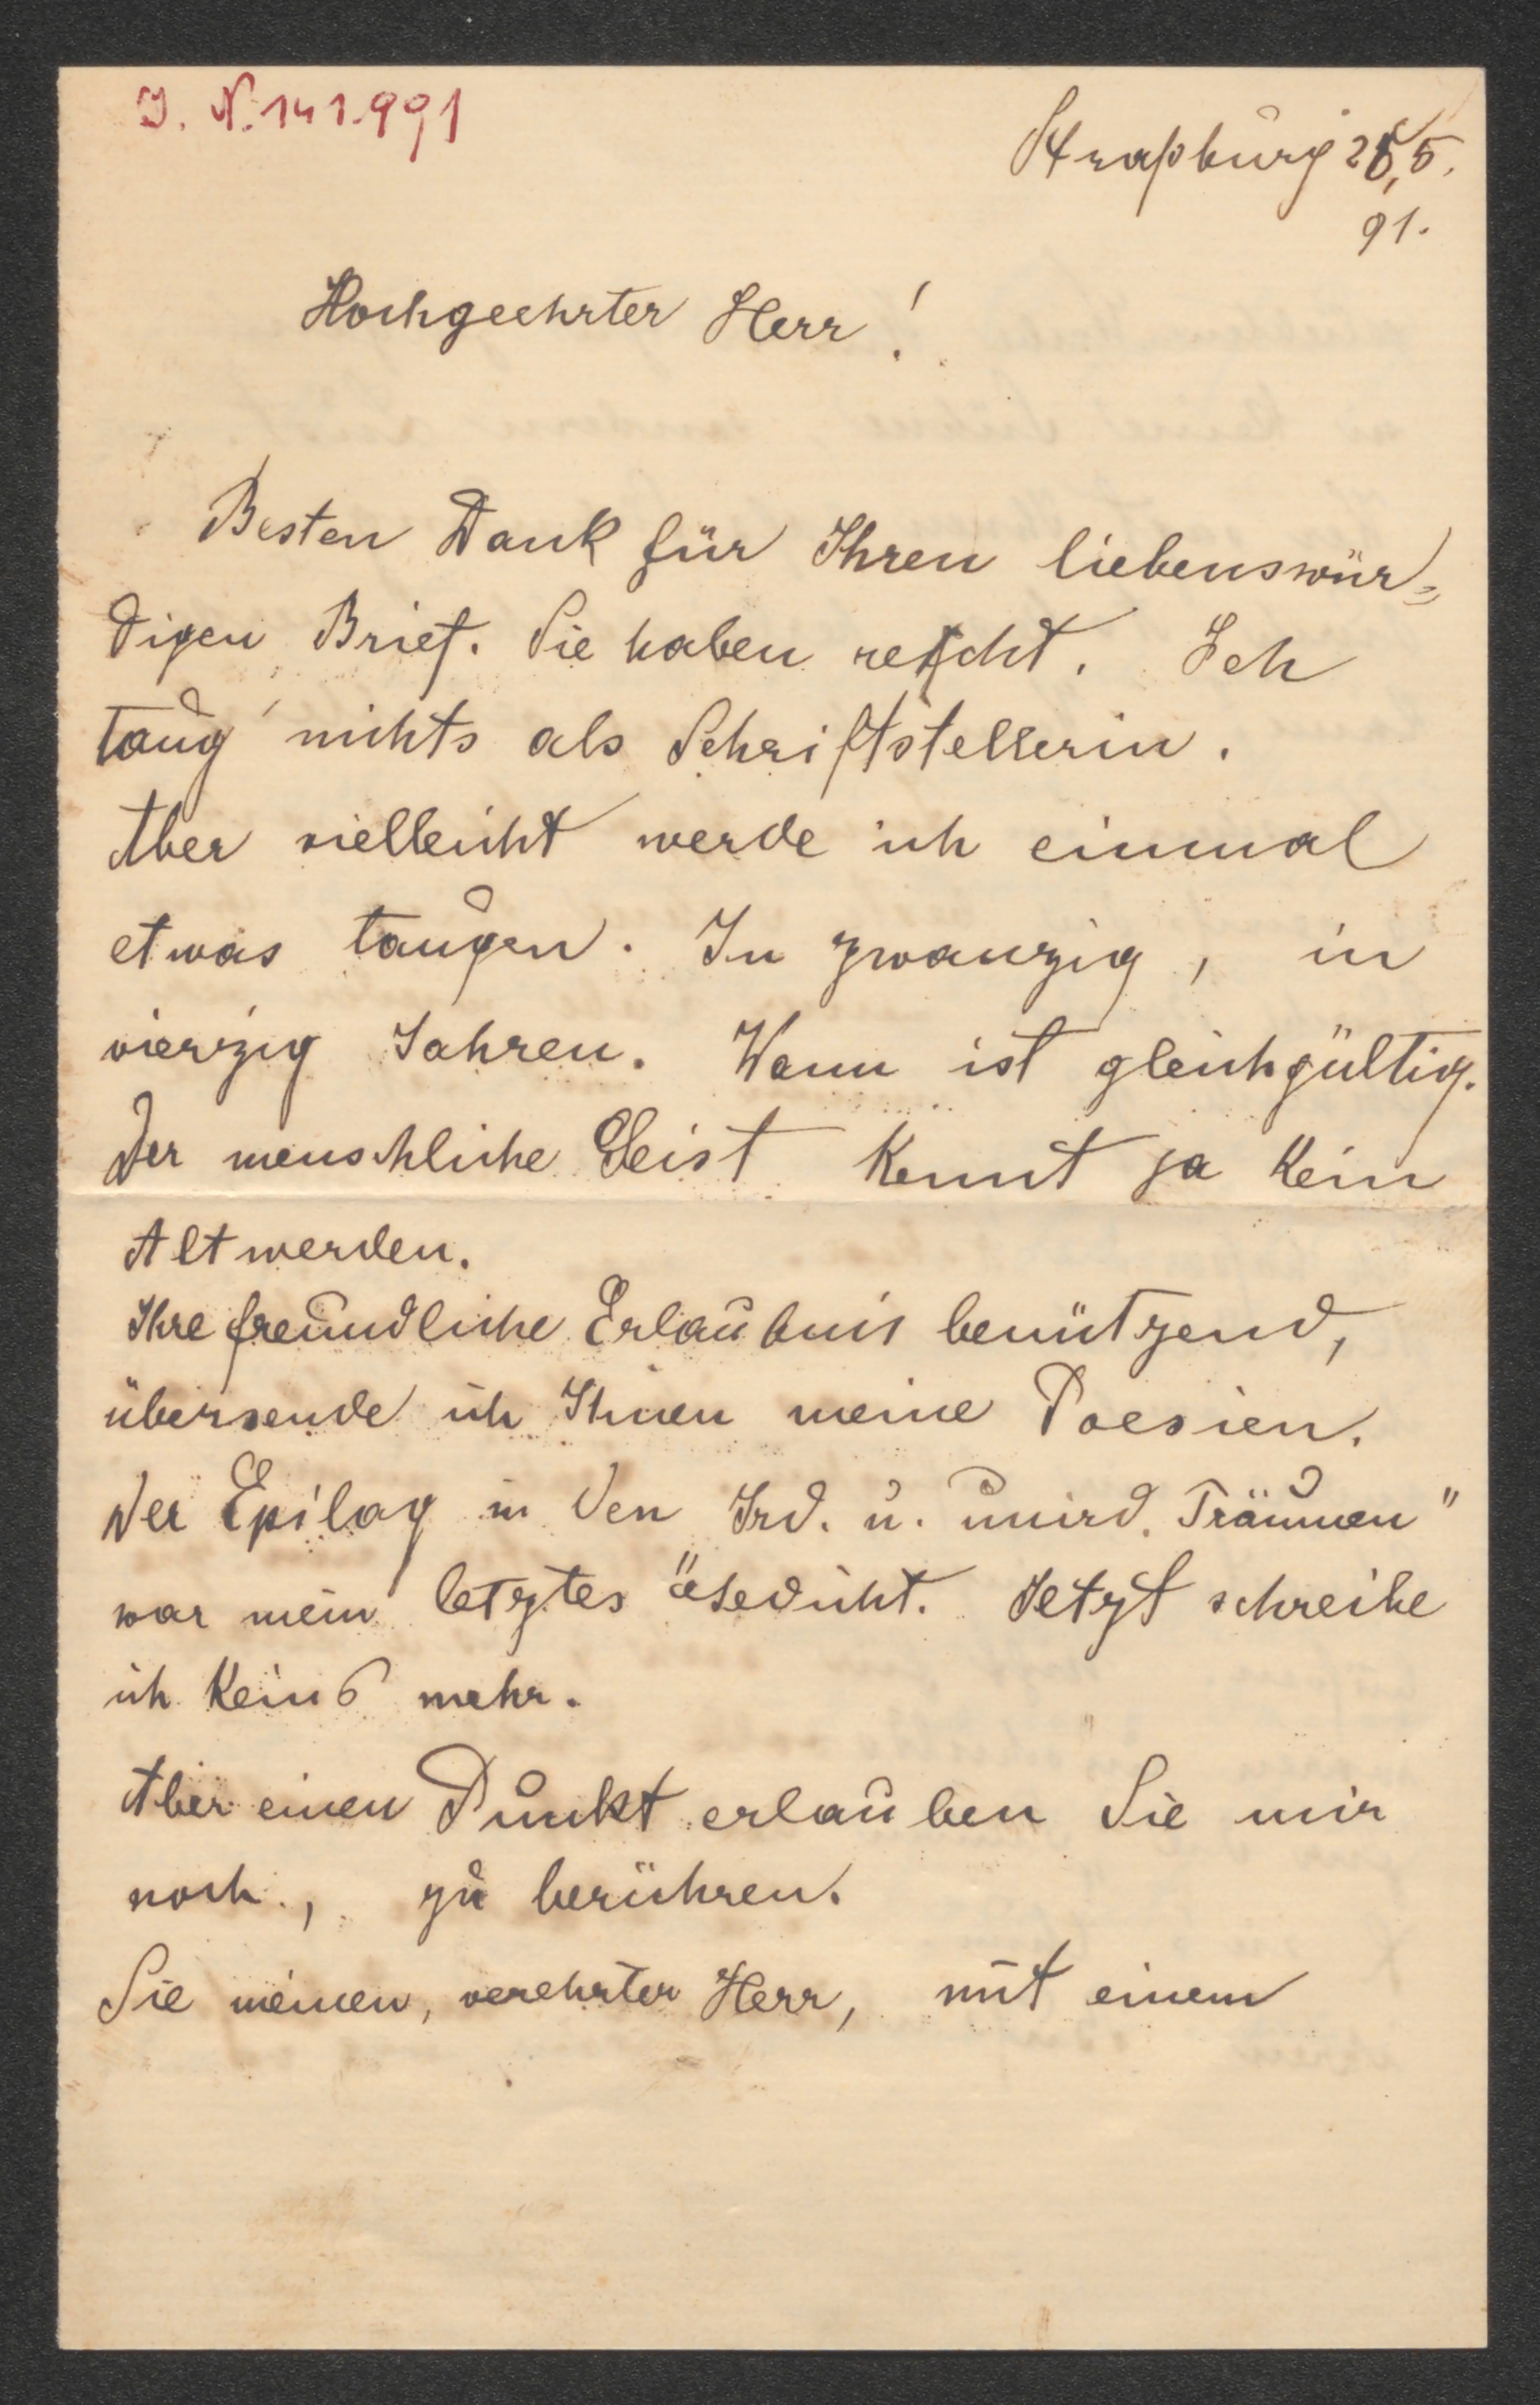 J. N. 141.991
Straßburg 25,5.
91.
Hochgeehrter Herr!
Besten Dank für Ihren liebenswür-
digen Brief. Sie haben recht. Ich
taug' nichts als Schriftstellerin.
Aber vielleicht werde ich einmal
etwas taugen. In zwanzig, in
vierzig Jahren. Wann ist gleichgültig.
Der menschliche Geist kennt ja kein
Altwerden.
Ihre freundliche Erlaubnis benützend,
übersende ich Ihnen meine Poesien.
Der Epilog in den Ird. u. unird. Träumen"
war mein letztes "Gedicht. Jetzt schreibe
ich keins mehr.
Aber einen Punkt erlauben Sie mir
noch, zu berühren.
Sie meinen, verehrter Herr, mit einem